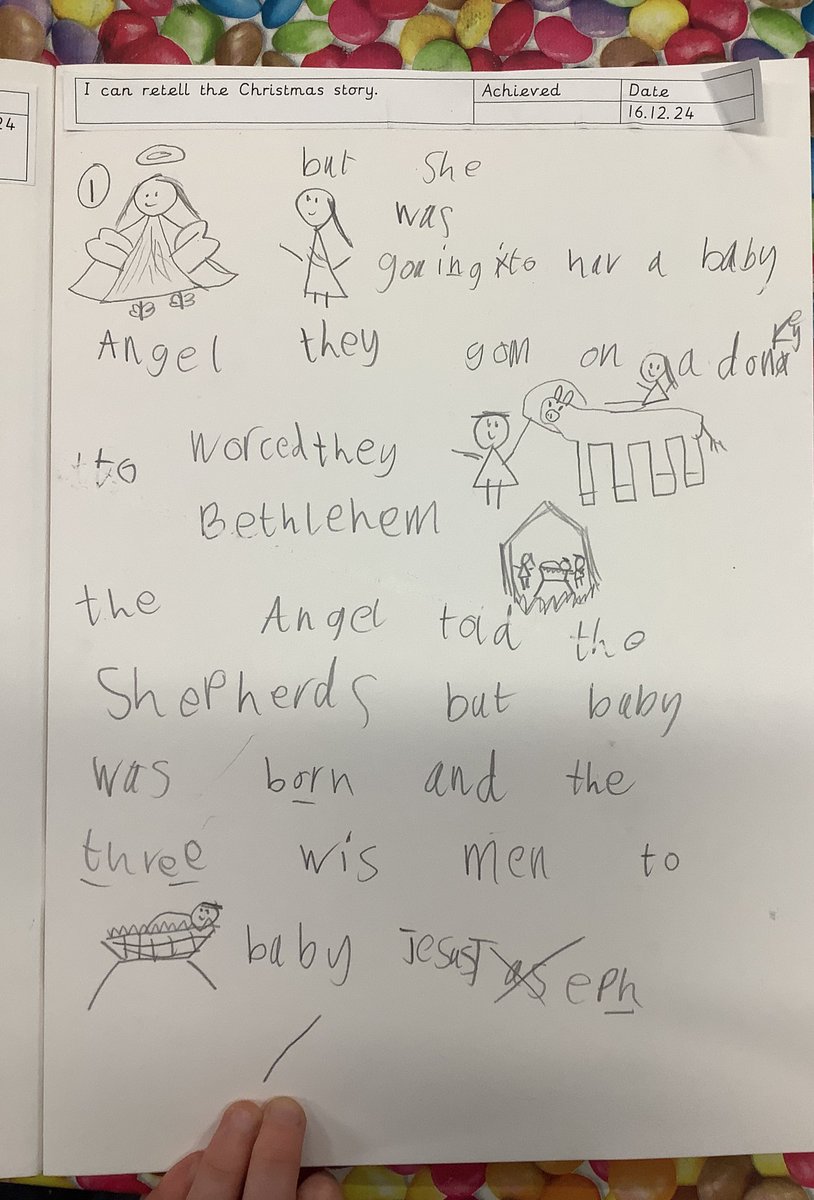 24
I can retell the Christmas story.
Achieved
Date
16.12.24
1
but she
was
going to hav a baby
Angel they gom on a donkey
to worced they
Bethlehem
the Angel told the
Shepherds but baby
was born and the
three wis men to
baby Jesus J as eph